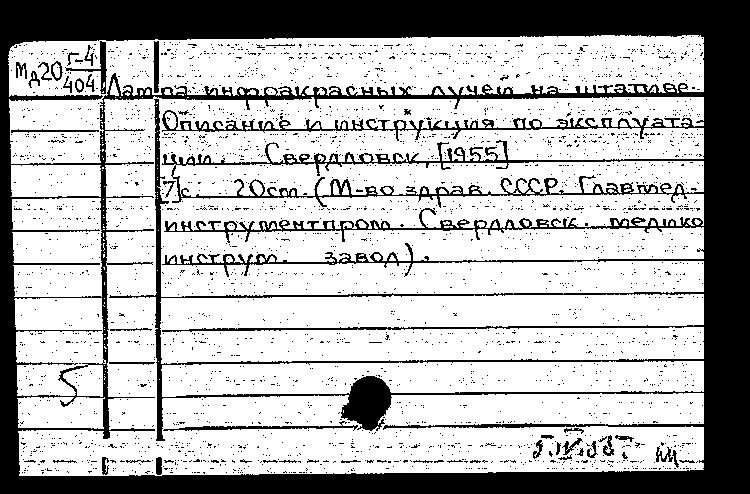 Мд20 Г-4
404
Лампа инфракрасных лучей на штативе.
Описание и инструкция по эксплуата-
ции. Свердловск, [1955]
[7]с. 20см. (М-во здрав. СССР. Главмед-
инструментпром. Свердловск. медико
инструм. завод).
5
5.IV.55.